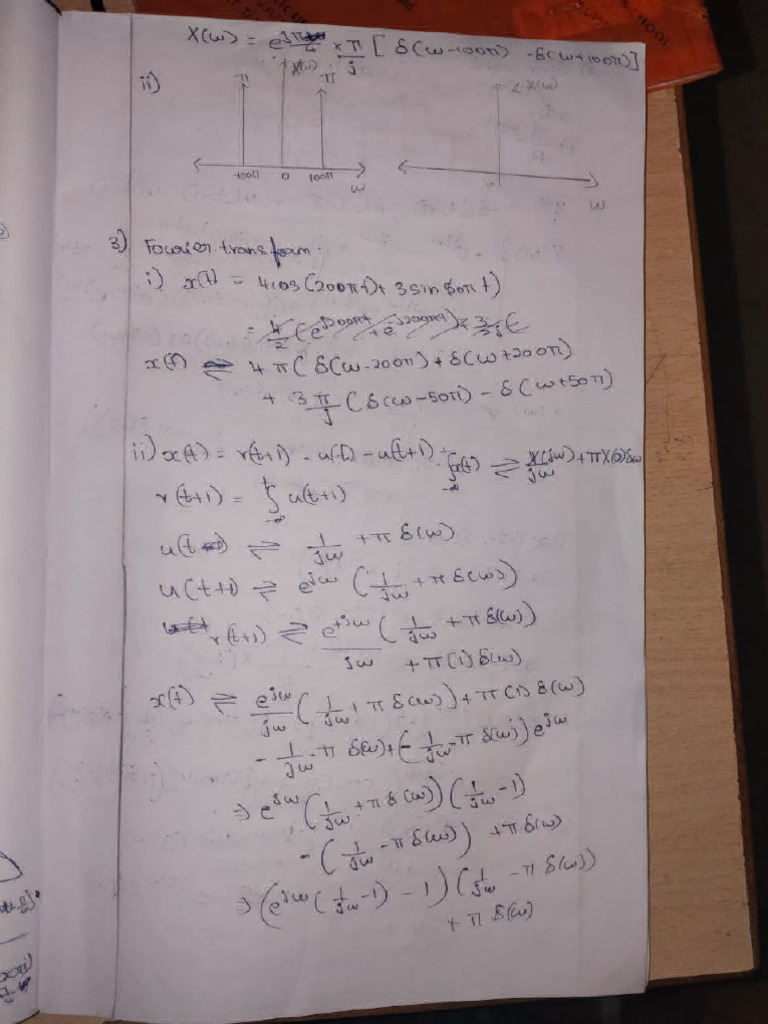 X(ω) = e^{jπ/4} × π/j [ δ(ω-100π) - δ(ω+100π)]
ii) X(ω) ∠X(ω)
π π
-100π 0 100π ω 0 ω
3) Fourier transform:
i) x(t) = 4cos(200πt) + 3 sin 50π t)
= 4/2 (e^{j200πt} + e^{-j200πt}) + 3/2j (
x(t) ⇌ 4π( δ(ω-200π) + δ(ω+200π)
+ 3 π/j ( δ(ω-50π) - δ(ω+50π)
ii) x(t) = r(t+1) - u(t) - u(t+1) ∫_{-∞}^{t} x(t) ⇌ X(jω)/jω + πX(0)δω
r(t+1) = ∫_{-∞}^{t} u(t+1)
u(t) ⇌ 1/jω + π δ(ω)
u(t+1) ⇌ e^{jω} ( 1/jω + π δ(ω))
r(t+1) ⇌ e^{+jω} ( 1/jω + π δ(ω)) / jω + π(1) δ(ω)
x(t) ⇌ e^{jω}/jω ( 1/jω + π δ(ω)) + π(1) δ(ω)
- 1/jω - π δ(ω) + (- 1/jω - π δ(ω)) e^{jω}
⇒ e^{jω} ( 1/jω + π δ(ω)) ( 1/jω - 1)
- ( 1/jω - π δ(ω)) + π δ(ω)
⇒ (e^{jω} ( 1/jω - 1) - 1) ( 1/jω - π δ(ω))
+ π δ(ω)